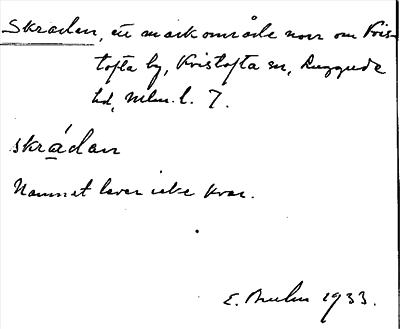 Skraden, ett markområde norr om Kris-
tofta by, Kristofta sn, Luggude
hd, Mlm. l. 7.
skrádan
Namnet lever icke kvar.
E. 1933.